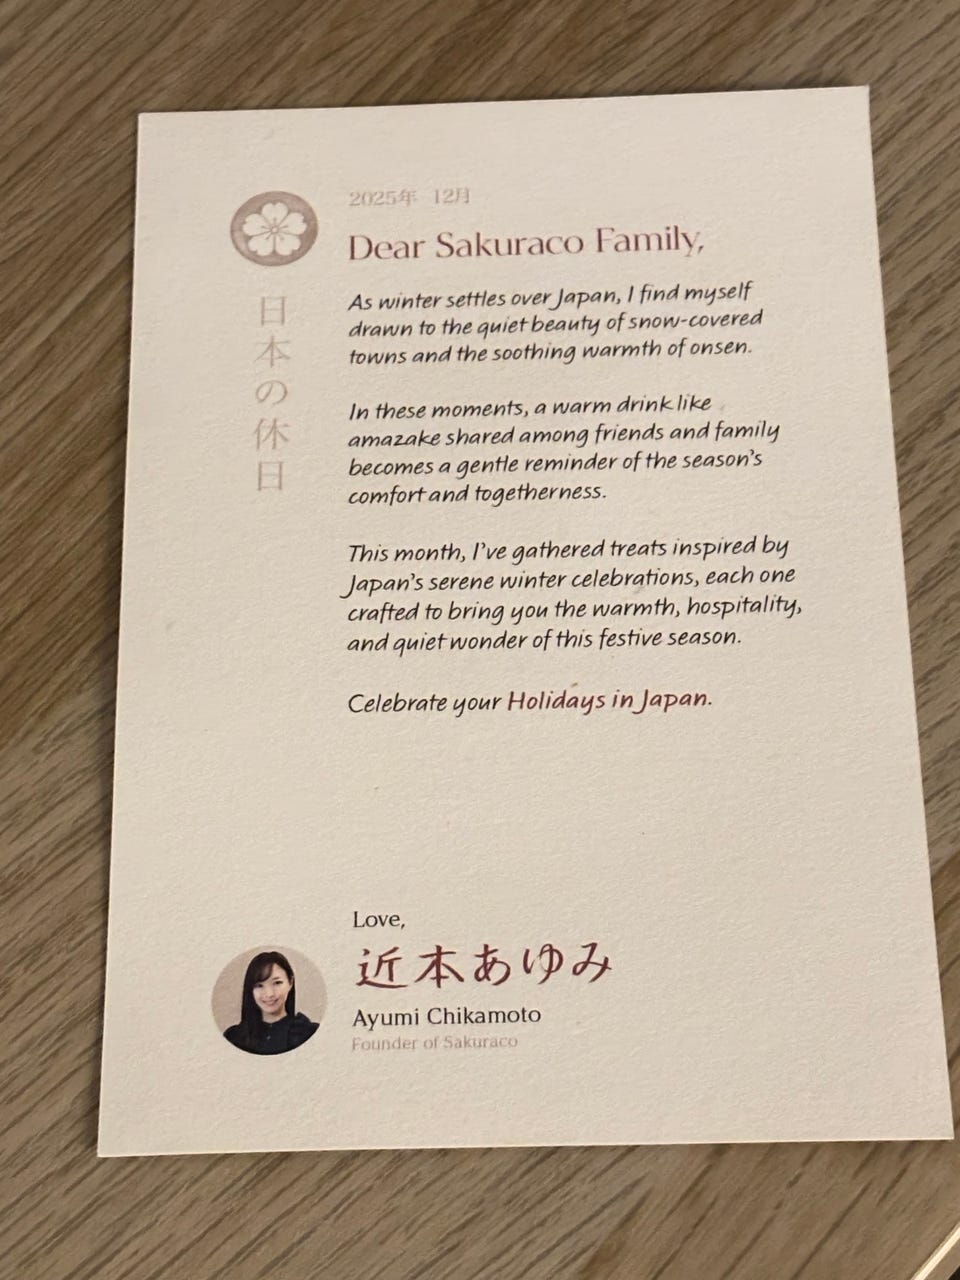 2025年 12月
Dear Sakuraco Family,
日本の休日
As winter settles over Japan, I find myself
drawn to the quiet beauty of snow-covered
towns and the soothing warmth of onsen.
In these moments, a warm drink like
amazake shared among friends and family
becomes a gentle reminder of the season's
comfort and togetherness.
This month, I've gathered treats inspired by
Japan's serene winter celebrations, each one
crafted to bring you the warmth, hospitality,
and quiet wonder of this festive season.
Celebrate your Holidays in Japan.
Love,
近本あゆみ
Ayumi Chikamoto
Founder of Sakuraco